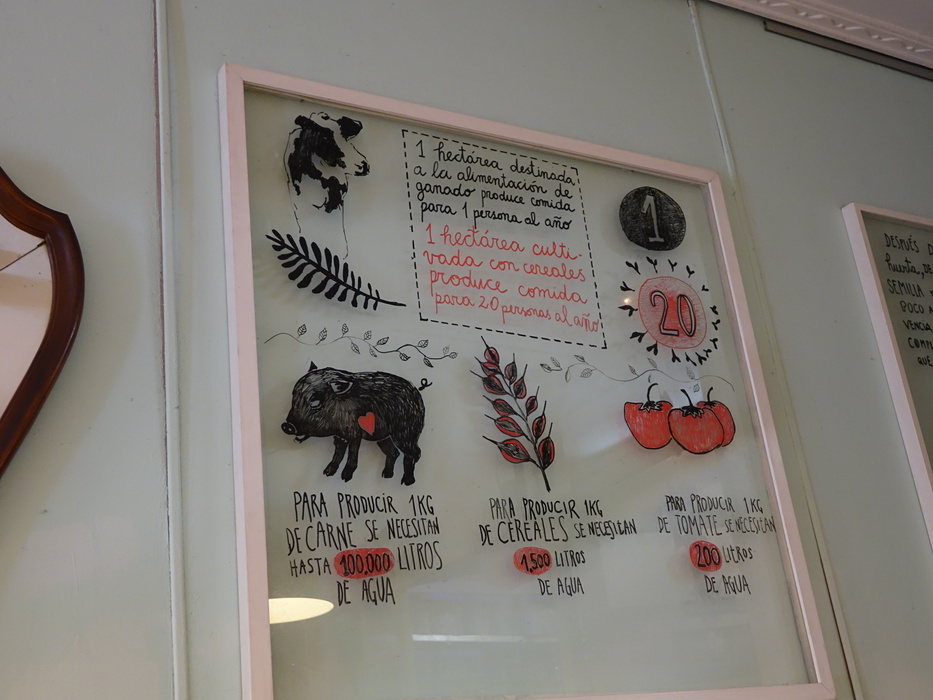 1 hectárea destinada
a la alimentación de
ganado produce comida
para 1 persona al año
1 hectárea culti-
vada con cereales
produce comida
para 20 personas al año
1
20
PARA PRODUCIR 1KG
DE CARNE SE NECESITAN
HASTA 100,000 LITROS
DE AGUA
PARA PRODUCIR 1KG
DE CEREALES SE NECESITAN
1,500 LITROS
DE AGUA
PARA PRODUCIR 1KG
DE TOMATE SE NECESITAN
200 LITROS
DE AGUA
DESPUÉS
huerta, DE
SEMILLA
POCO
VENCIA
QUE